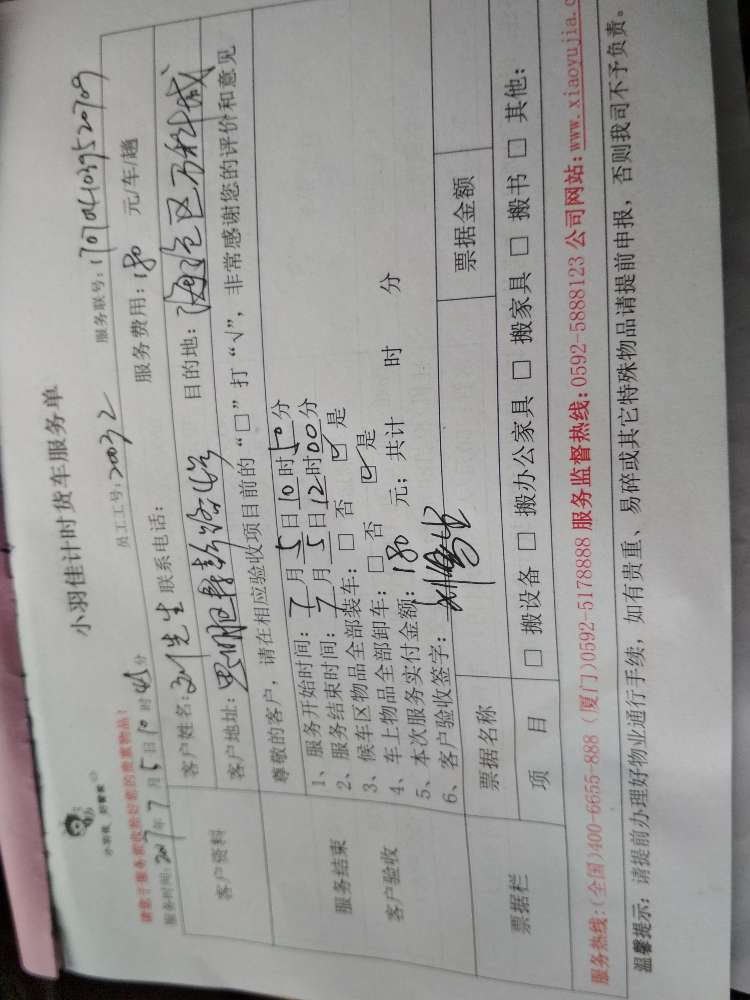 小羽佳计时货车服务单
小羽佳 好管家
请您于服务前收拾好您的贵重物品!
服务时间:2017年7月5日10时45分 员工工号:20032 服务联号:
客户资料
客户姓名:刘先生 联系电话: 服务费用:180 元/车/趟
客户地址:思明区 目的地:海沧区万科城
尊敬的客户,请在相应验收项目前的“□”打“√”,非常感谢您的评价和意见
服务结束
客户验收
1、服务开始时间:7月5日10时50分
2、服务结束时间:7月5日12时00分
3、候车区物品全部装车:□ 否 ☑ 是
4、车上物品全部卸车:□ 否 ☑ 是
5、本次服务实付金额:180 元;共计 时 分
6、客户验收签字:
票据栏
票据名称 票据金额
项 目 □ 搬设备 □ 搬办公家具 □ 搬家具 □ 搬书 □ 其他:
服务热线:(全国)400-6655-888 (厦门)0592-5178888 服务监督热线:0592-5888123 公司网站:www.xiaoyujia.c
温馨提示:请提前办理好物业通行手续,如有贵重、易碎或其它特殊物品请提前申报,否则我司不予负责。